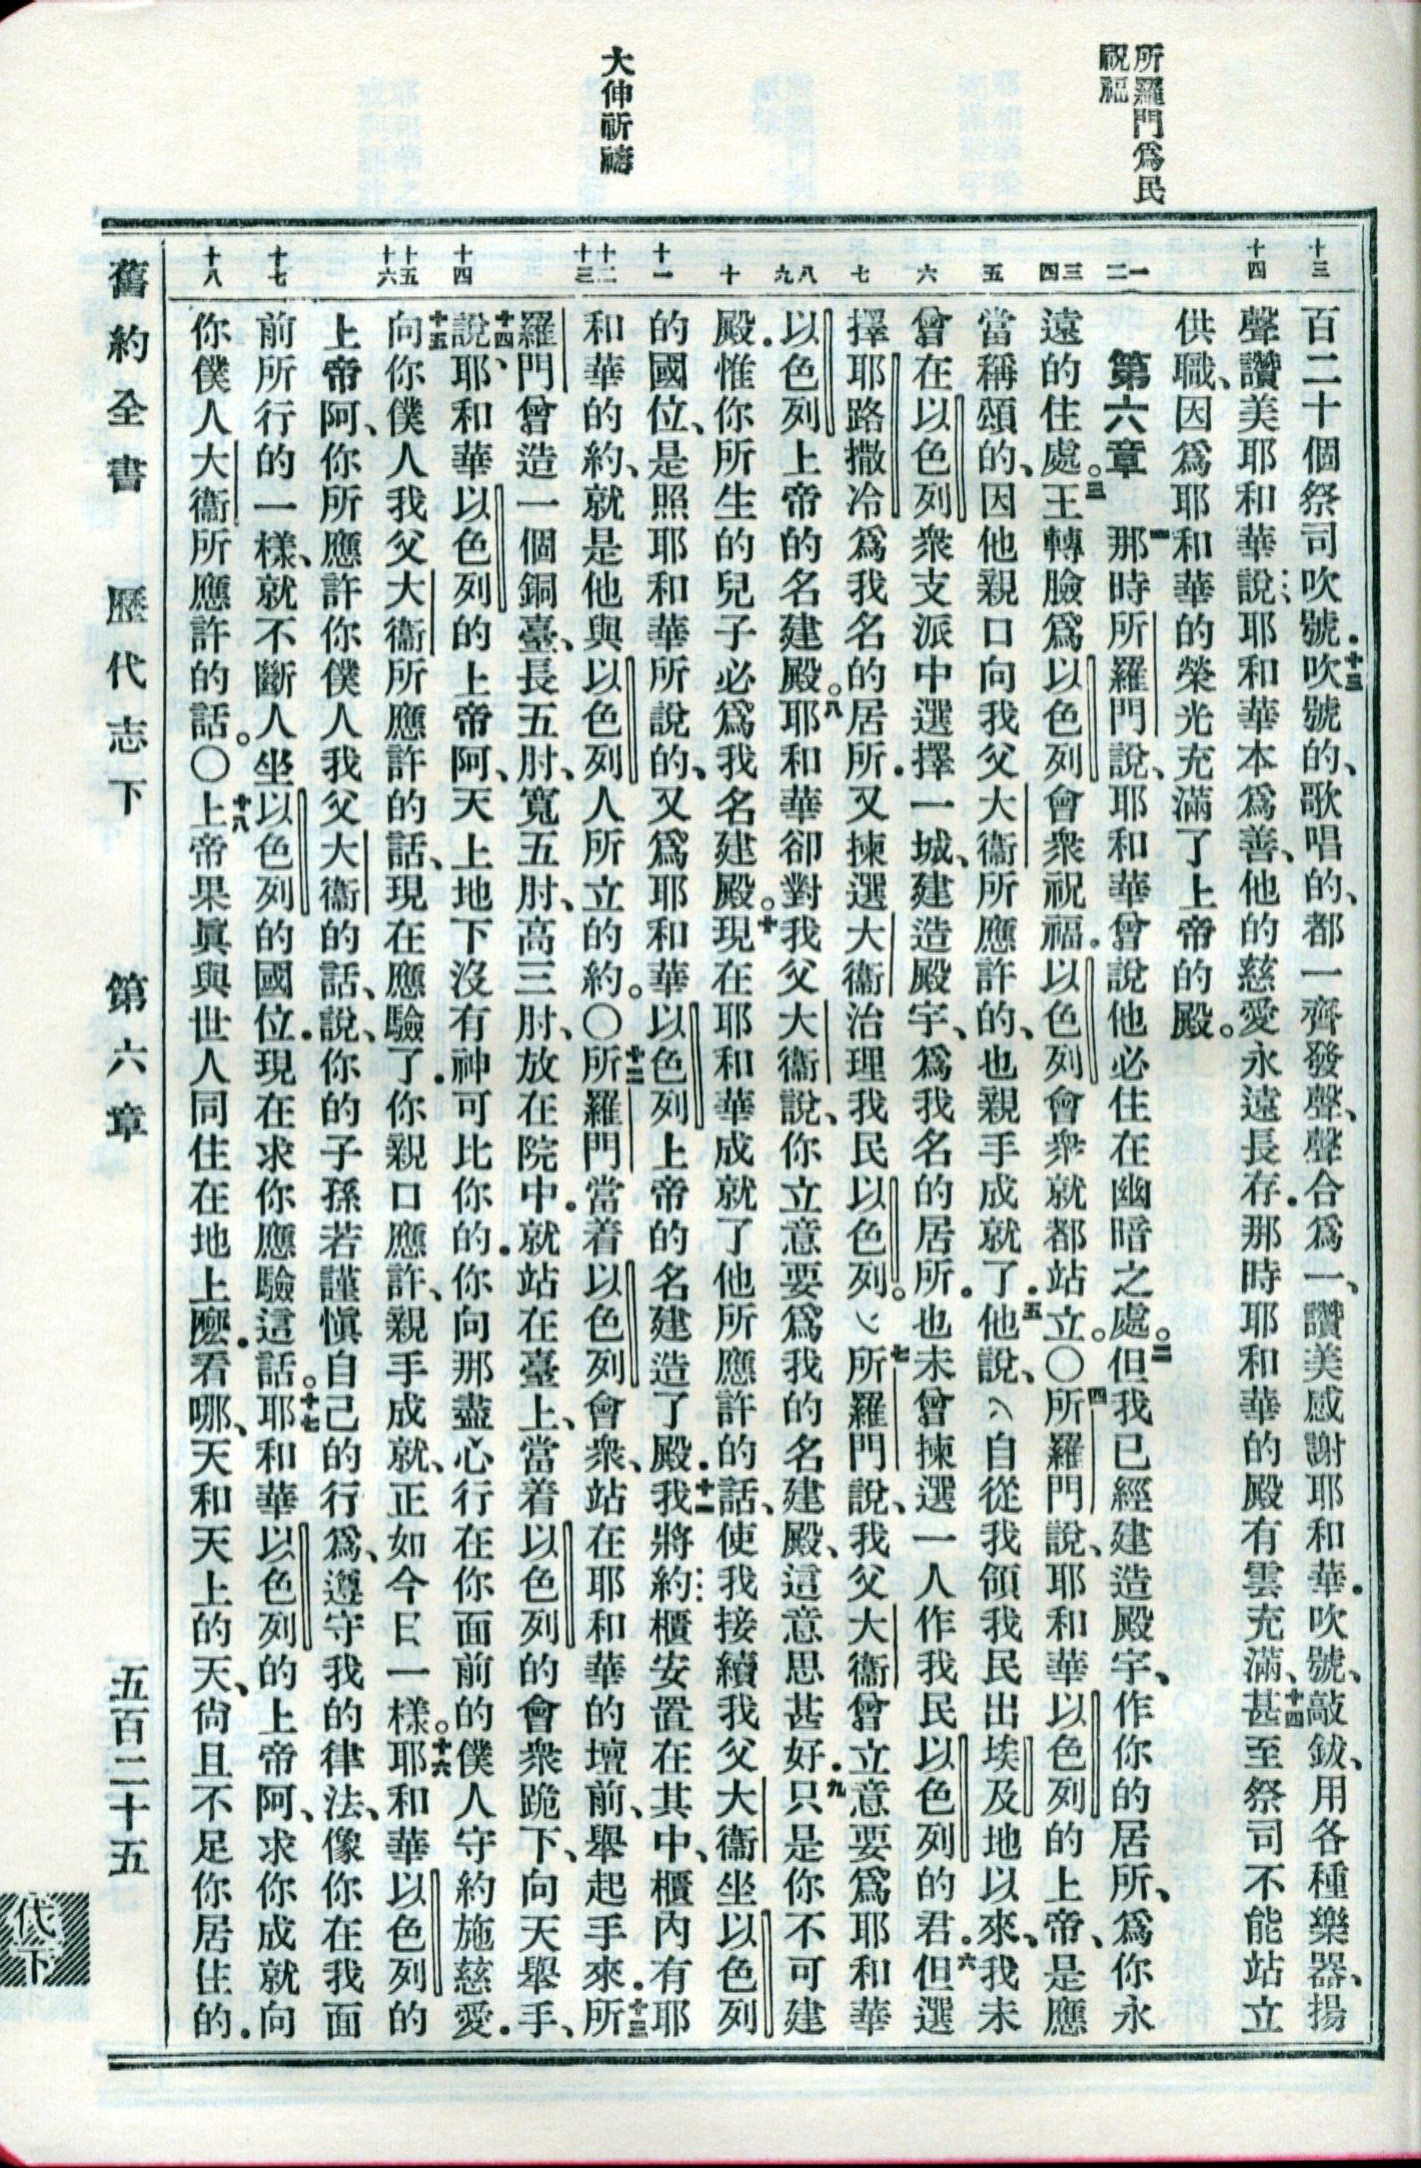 所羅門爲民
祝福
大伸祈禱
十三
十四
一
二
三
四
五
六
七
八
九
十
十一
十二
十三
十四
十五
十六
十七
十八
百二十個祭司吹號．十三吹號的、歌唱的、都一齊發聲、聲合爲一、讚美感謝耶和華．吹號、敲鈸、用各種樂器、揚
聲讚美耶和華說、耶和華本爲善、他的慈愛永遠長存．那時耶和華的殿有雲充滿、十四甚至祭司不能站立
供職、因爲耶和華的榮光充滿了上帝的殿。
第六章 一那時所羅門說、耶和華曾說他必住在幽暗之處。二但我已經建造殿宇、作你的居所、爲你永
遠的住處。三王轉臉爲以色列會衆祝福．以色列會衆就都站立。〇四所羅門說、耶和華以色列的上帝、是應
當稱頌的、因他親口向我父大衞所應許的、也親手成就了．五他說、（自從我領我民出埃及地以來、我未
曾在以色列衆支派中選擇一城、建造殿宇、爲我名的居所．也未曾揀選一人作我民以色列的君．六但選
擇耶路撒冷爲我名的居所．又揀選大衞治理我民以色列。）七所羅門說、我父大衞曾立意要爲耶和華
以色列上帝的名建殿。八耶和華卻對我父大衞說、你立意要爲我的名建殿、這意思甚好．九只是你不可建
殿．惟你所生的兒子必爲我名建殿。十現在耶和華成就了他所應許的話、使我接續我父大衞坐以色列
的國位、是照耶和華所說的、又爲耶和華以色列上帝的名建造了殿．十一我將約櫃安置在其中、櫃內有耶
和華的約、就是他與以色列人所立的約。〇十二所羅門當着以色列會衆、站在耶和華的壇前、舉起手來．十三所
羅門曾造一個銅臺、長五肘、寬五肘、高三肘、放在院中．就站在臺上、當着以色列的會衆跪下、向天舉手、
十四說、耶和華以色列的上帝阿、天上地下沒有神可比你的．你向那盡心行在你面前的僕人守約施慈愛．
十五向你僕人我父大衞所應許的話、現在應驗了．你親口應許、親手成就、正如今日一樣。十六耶和華以色列的
上帝阿、你所應許你僕人我父大衞的話、說、你的子孫若謹慎自己的行爲、遵守我的律法、像你在我面
前所行的一樣、就不斷人坐以色列的國位．現在求你應驗這話。十七耶和華以色列的上帝阿、求你成就向
你僕人大衞所應許的話。〇十八上帝果眞與世人同住在地上麽．看哪、天和天上的天、尙且不足你居住的．
舊約全書 歷代志下 第六章 五百二十五
代下